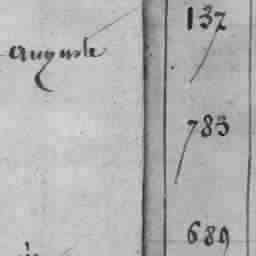 Auguste
137
783
689